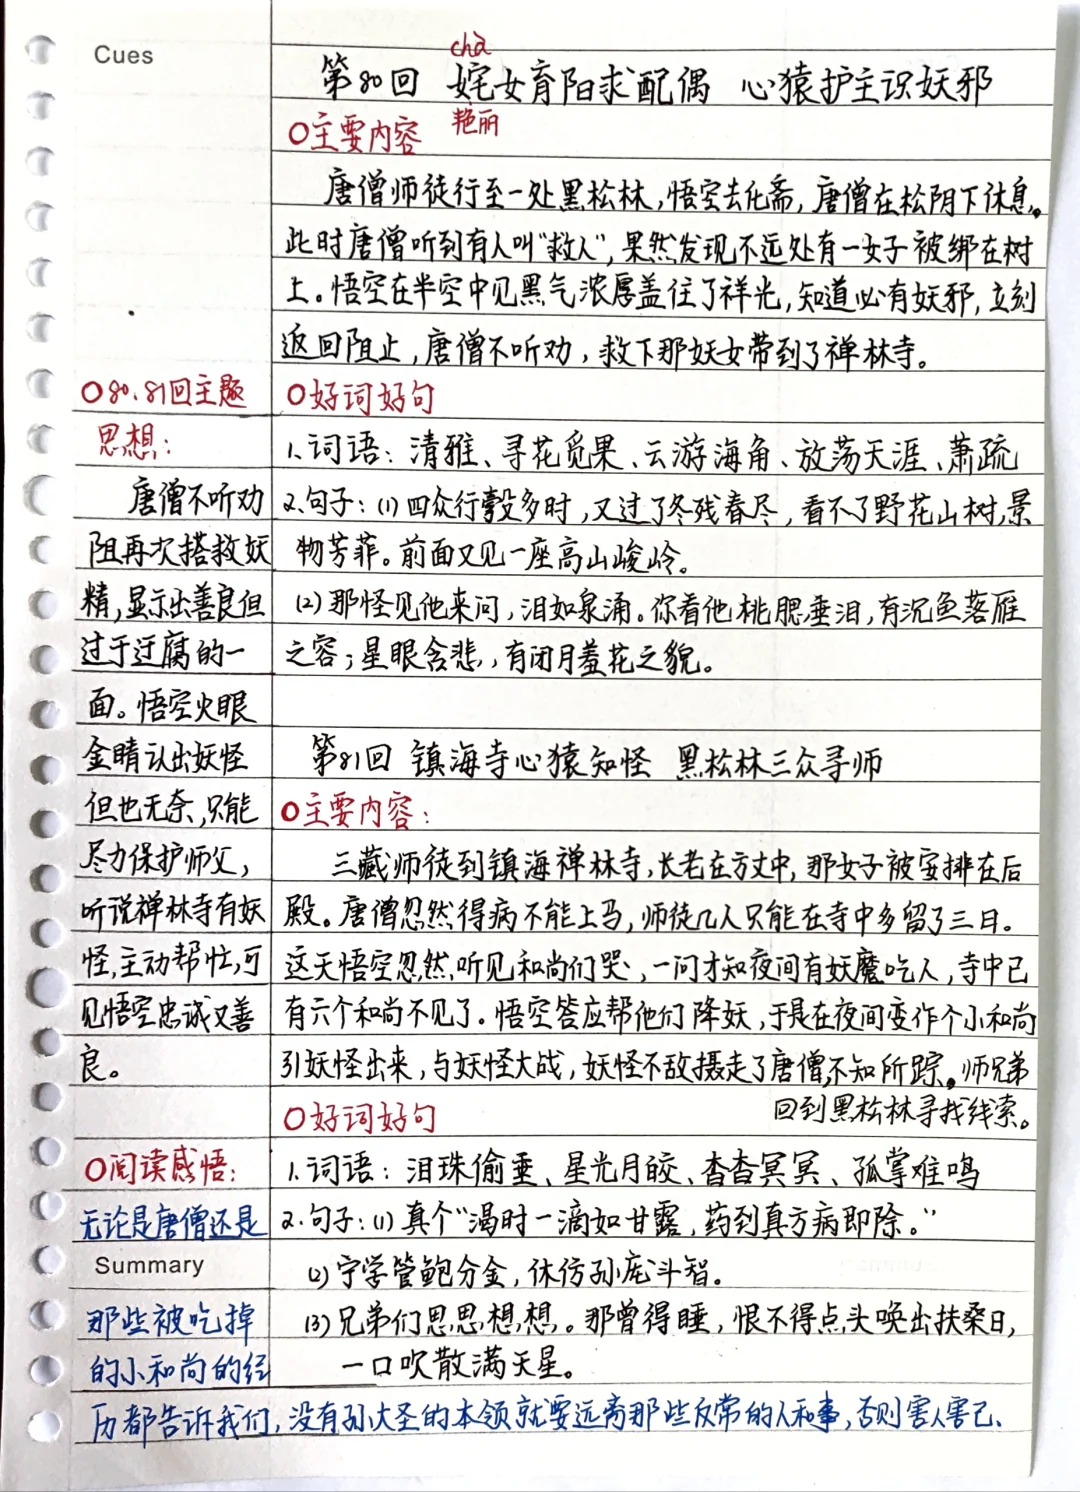 Cues
chà
第80回 姹女育阳求配偶 心猿护主识妖邪
艳丽
○主要内容
唐僧师徒行至一处黑松林，悟空去化斋，唐僧在松阴下休息。
此时唐僧听到有人叫“救人”，果然发现不远处有一女子被绑在树
上。悟空在半空中见黑气浓厚盖住了祥光，知道必有妖邪，立刻
返回阻止，唐僧不听劝，救下那妖女带到了禅林寺。
○好词好句
1.词语：清雅、寻花觅果、云游海角、放荡天涯、萧疏
2.句子：(1)四众行彀多时，又过了冬残春尽，看不了野花山树，景
物芳菲。前面又见一座高山峻岭。
(2)那怪见他来问，泪如泉涌。你看他桃腮垂泪，有沉鱼落雁
之容；星眼含悲，有闭月羞花之貌。
第81回 镇海寺心猿知怪 黑松林三众寻师
○主要内容：
三藏师徒到镇海禅林寺，长老在方丈中，那女子被安排在后
殿。唐僧忽然得病不能上马，师徒几人只能在寺中多留了三日。
这天悟空忽然听见和尚们哭，一问才知夜间有妖魔吃人，寺中已
有六个和尚不见了。悟空答应帮他们降妖，于是在夜间变作个小和尚
引妖怪出来，与妖怪大战，妖怪不敌摄走了唐僧不知所踪。师兄弟
回到黑松林寻找线索。
○好词好句
1.词语：泪珠偷垂、星光月皎、杳杳冥冥、孤掌难鸣
2.句子：(1)真个“渴时一滴如甘露，药到真方病即除。”
(2)宁学管鲍分金，休仿孙庞斗智。
(3)兄弟们思思想想。那曾得睡，恨不得点头唤出扶桑日，
一口吹散满天星。
○80、81回主题
思想：
唐僧不听劝
阻再次搭救妖
精，显示出善良但
过于迂腐的一
面。悟空火眼
金睛认出妖怪
但也无奈，只能
尽力保护师父，
听说禅林寺有妖
怪，主动帮忙，可
见悟空忠诚又善
良。
○阅读感悟：
无论是唐僧还是
Summary
那些被吃掉
的小和尚的经
历都告诉我们，没有孙大圣的本领就要远离那些反常的人和事，否则害人害己、